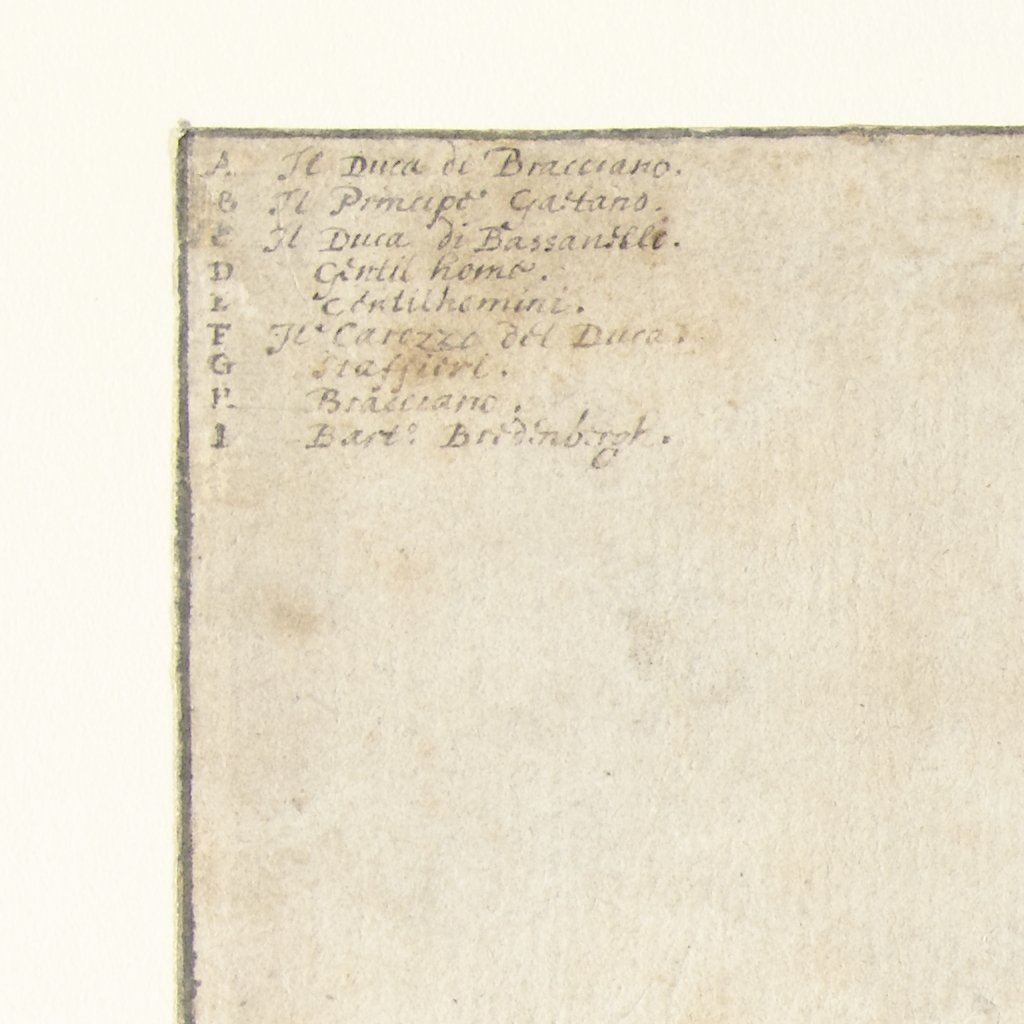 A Il Duca di Bracciano.
B Il Principe Gaetano.
C Il Duca di Bassanelli.
D Gentil home.
E Gentilhomini.
F Il Carozzo del Duca.
G Staffieri.
H Bracciano.
I Bart.º Bredenbergh.